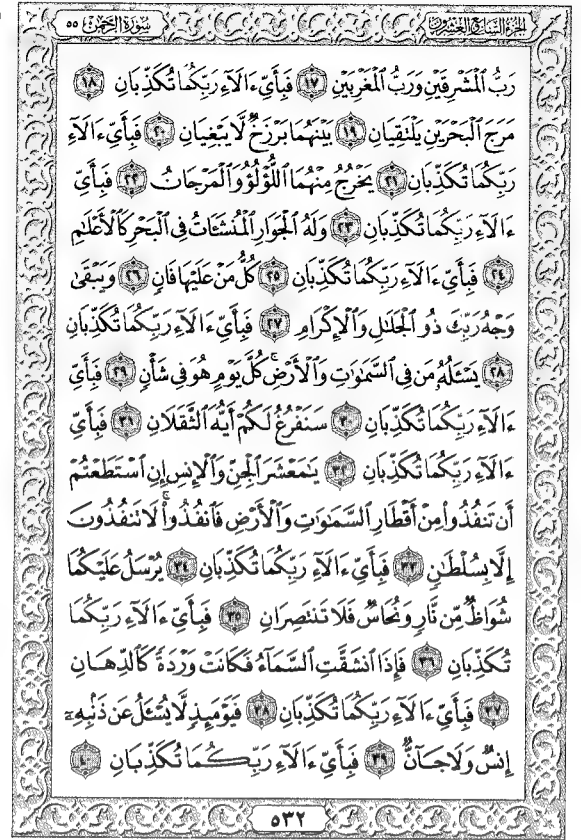 الجزء السابع والعشرون سورة الرحمن ٥٥
رَبُّ ٱلْمَشْرِقَيْنِ وَرَبُّ ٱلْمَغْرِبَيْنِ ١٧ فَبِأَيِّ ءَالَآءِ رَبِّكُمَا تُكَذِّبَانِ ١٨
مَرَجَ ٱلْبَحْرَيْنِ يَلْتَقِيَانِ ١٩ بَيْنَهُمَا بَرْزَخٌ لَّا يَبْغِيَانِ ٢٠ فَبِأَيِّ ءَالَآءِ
رَبِّكُمَا تُكَذِّبَانِ ٢١ يَخْرُجُ مِنْهُمَا ٱللُّؤْلُؤُ وَٱلْمَرْجَانُ ٢٢ فَبِأَيِّ
ءَالَآءِ رَبِّكُمَا تُكَذِّبَانِ ٢٣ وَلَهُ ٱلْجَوَارِ ٱلْمُنشَـَٔاتُ فِي ٱلْبَحْرِ كَٱلْأَعْلَٰمِ
٢٤ فَبِأَيِّ ءَالَآءِ رَبِّكُمَا تُكَذِّبَانِ ٢٥ كُلُّ مَنْ عَلَيْهَا فَانٍ ٢٦ وَيَبْقَىٰ
وَجْهُ رَبِّكَ ذُو ٱلْجَلَٰلِ وَٱلْإِكْرَامِ ٢٧ فَبِأَيِّ ءَالَآءِ رَبِّكُمَا تُكَذِّبَانِ
٢٨ يَسْـَٔلُهُۥ مَن فِي ٱلسَّمَٰوَٰتِ وَٱلْأَرْضِ ۚ كُلَّ يَوْمٍ هُوَ فِي شَأْنٍ ٢٩ فَبِأَيِّ
ءَالَآءِ رَبِّكُمَا تُكَذِّبَانِ ٣٠ سَنَفْرُغُ لَكُمْ أَيُّهَ ٱلثَّقَلَانِ ٣١ فَبِأَيِّ
ءَالَآءِ رَبِّكُمَا تُكَذِّبَانِ ٣٢ يَٰمَعْشَرَ ٱلْجِنِّ وَٱلْإِنسِ إِنِ ٱسْتَطَعْتُمْ
أَن تَنفُذُوا۟ مِنْ أَقْطَارِ ٱلسَّمَٰوَٰتِ وَٱلْأَرْضِ فَٱنفُذُوا۟ ۚ لَا تَنفُذُونَ
إِلَّا بِسُلْطَٰنٍ ٣٣ فَبِأَيِّ ءَالَآءِ رَبِّكُمَا تُكَذِّبَانِ ٣٤ يُرْسَلُ عَلَيْكُمَا
شُوَاظٌ مِّن نَّارٍ وَنُحَاسٌ فَلَا تَنتَصِرَانِ ٣٥ فَبِأَيِّ ءَالَآءِ رَبِّكُمَا
تُكَذِّبَانِ ٣٦ فَإِذَا ٱنشَقَّتِ ٱلسَّمَآءُ فَكَانَتْ وَرْدَةً كَٱلدِّهَانِ
٣٧ فَبِأَيِّ ءَالَآءِ رَبِّكُمَا تُكَذِّبَانِ ٣٨ فَيَوْمَئِذٍ لَّا يُسْـَٔلُ عَن ذَنۢبِهِۦٓ
إِنسٌ وَلَا جَآنٌّ ٣٩ فَبِأَيِّ ءَالَآءِ رَبِّكُمَا تُكَذِّبَانِ ٤٠
٥٣٢